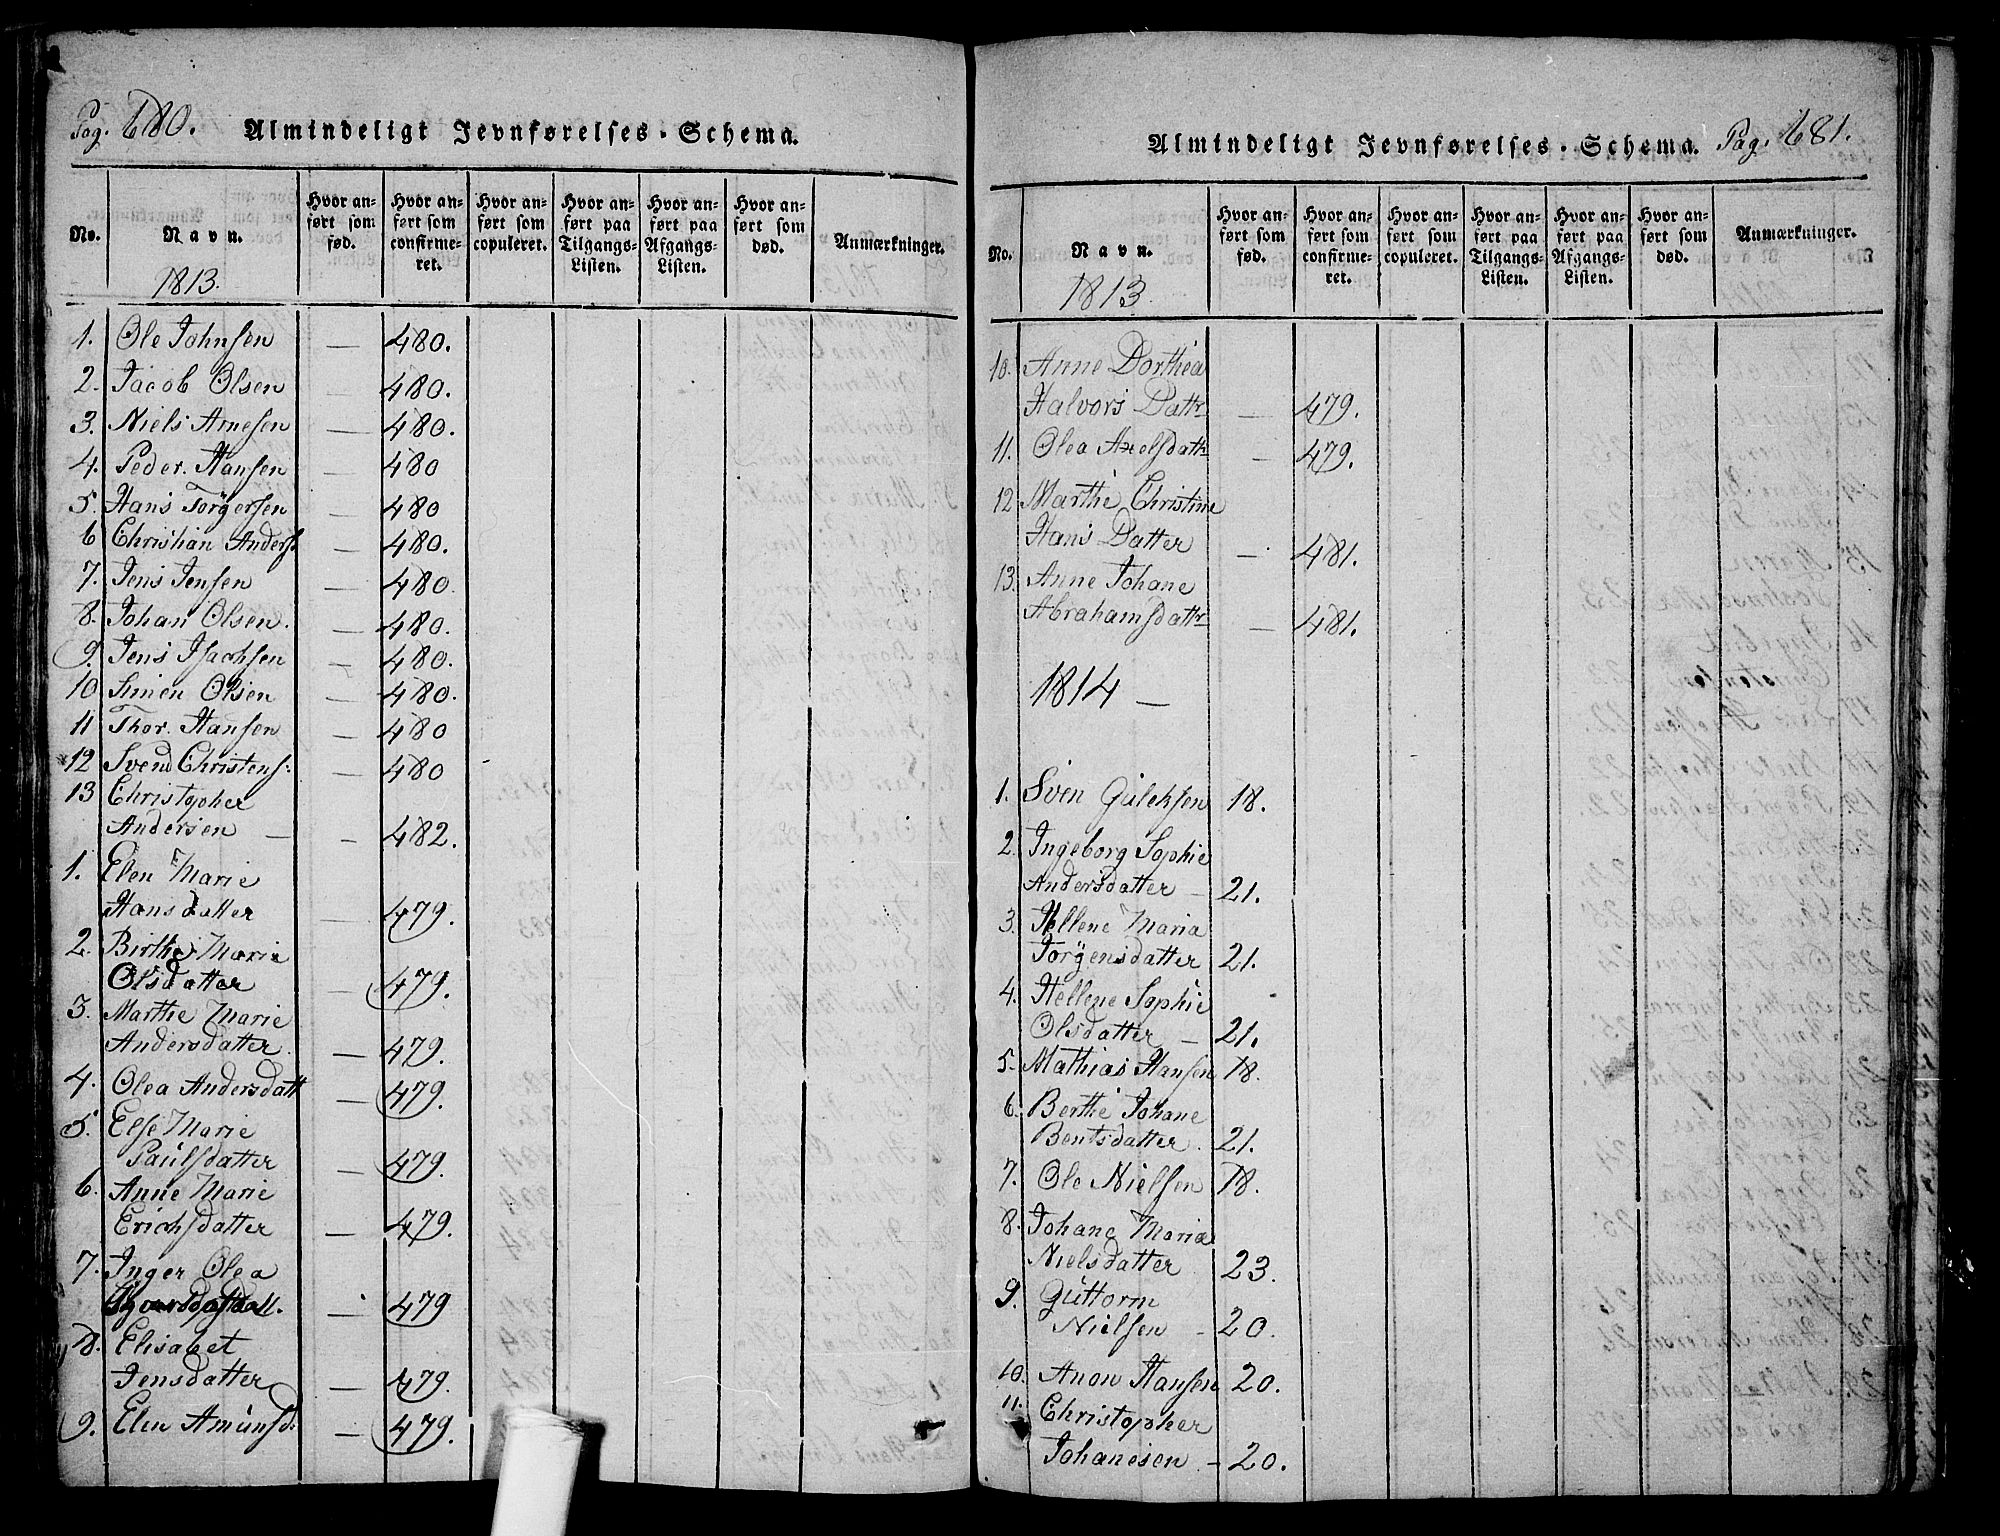 Pag. 680. Almindeligt Jevnførelses-Schema.
No. Navn. Hvor anført som fød. Hvor anført som confirmeret. Hvor anført som copuleret. Hvor anført paa Tilgangs-Listen. Hvor anført paa Afgangs-Listen. Hvor anført som død. Anmærkninger.
1813.
1. Ole Johnsen — 480.
2. Jacob Olsen — 480.
3. Niels Arnesen — 480.
4. Peder Hansen — 480
5. Hans Torgersen — 480
6 Christian Anders: — 480.
7. Jens Jensen — 480.
8. Johan Olsen. — 480.
9. Jens Isachsen — 480.
10 Simen Olsen — 480.
11 Thor Hansen — 480
12 Svend Christens: — 480
13 Christopher
Andersen — - 482.
1. Elen Marie
Hansdatter — 479.
2. Birthe Marie
Olsdatter — 479.
3. Marthe Marie
Andersdatter. — 479.
4. Olea Andersdatt — 479.
5. Else Marie
Paulsdatter — 479.
6. Anne Marie
Erichsdatter — 479.
7. Inger Olea
— 479
8. Elisabet
Jensdatter — 479.
9. Elen Amunsd: — 479.
Almindeligt Jevnførelses-Schema. Pag. 681.
No. Navn. Hvor anført som fød. Hvor anført som confirmeret. Hvor anført som copuleret. Hvor anført paa Tilgangs-Listen. Hvor anført paa Afgangs-Listen. Hvor anført som død. Anmærkninger.
1813.
10. Anne Dorthea
Halvors Dattr — 479.
11. Olea Axelsdattr — 479.
12 Marthe Christine
Hans Datter — 481.
13. Anne Johane
Abrahamsdattr — 481.
1814 —
1. Sven Gulchsen 18.
2. Ingeborg Sophie
Andersdatter — 21.
3. Hellene Maria
Jørgensdatter 21.
4. Hellene Sophie
Olsdatter — 21.
5. Mathias Hansen 18.
6. Berthe Johane
Bentsdatter. 21.
7. Ole Nielsen 18.
8. Johane Maria
Nielsdatter 23.
9. Guttorm
Nielsen - 20.
10. Anon Hansen 20.
11. Christopher
Johanesen - 20.